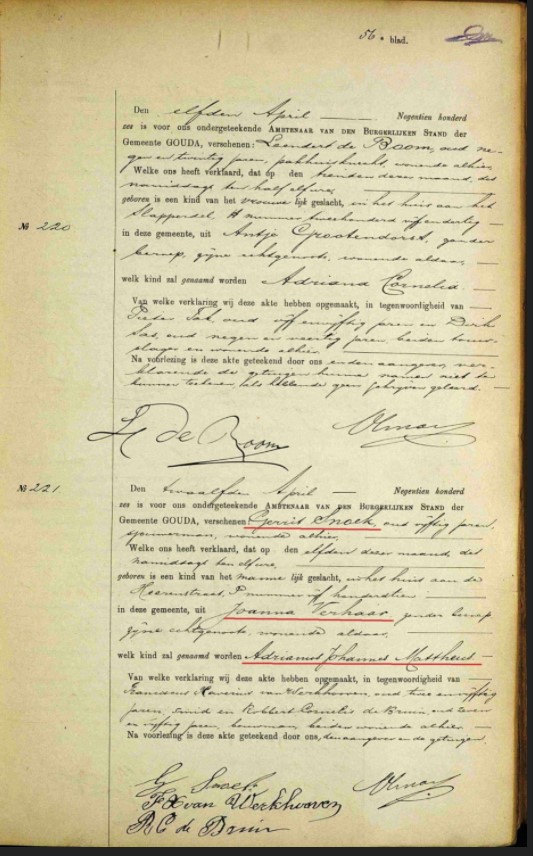 56e blad.
Den elfden April Negentien honderd
zes is voor ons ondergeteekende AMBTENAAR VAN DEN BURGERLIJKEN STAND der
Gemeente GOUDA, verschenen: Leendert de Boom, oud ne-
gen en twintig jaren, pakhuisknecht, wonende alhier
Welke ons heeft verklaard, dat op den tienden dezer maand, des
namiddags ten half elf ure,
geboren is een kind van het vrouwelijk geslacht, in het huis aan het
Slapperdel, nummer tweehonderd vijf en dertig
№ 220
in deze gemeente, uit Antje Grootendorst, zonder
beroep, zijne echtgenoote, wonende aldaar,
welk kind zal genaamd worden Adriana Cornelia.
Van welke verklaring wij deze akte hebben opgemaakt, in tegenwoordigheid van
Pieter oud vijf en vijftig jaren en Dirk
oud negen en veertig jaren, beiden
en wonende alhier.
Na voorlezing is deze akte geteekend door ons en den aangever, ver-
klarende de getuigen hunne namen niet te
kunnen teekenen, als hebbende geen schrijven geleerd.
L de Boom
№ 221.
Den twaalfden April Negentien honderd
zes is voor ons ondergeteekende AMBTENAAR VAN DEN BURGERLIJKEN STAND der
Gemeente GOUDA, verschenen: Gerrit Snoek, oud vijftig jaren,
wonende alhier,
Welke ons heeft verklaard, dat op den elfden dezer maand, des
namiddags ten elf ure,
geboren is een kind van het mannelijk geslacht, in het huis aan de
Heerenstraat, P nummer vijf honderd tien
in deze gemeente, uit Joanna Verhaar zonder beroep
zijne echtgenoote, wonende aldaar,
welk kind zal genaamd worden Adrianus Johannes Mattheus
Van welke verklaring wij deze akte hebben opgemaakt, in tegenwoordigheid van
Franciscus Xaverius van Werkhooven, oud twee en vijftig
jaren, smid en Robbert Cornelis de Bruin, oud zeven
en vijftig jaren, beiden wonende alhier
Na voorlezing is deze akte geteekend door ons, den aangever en de getuigen.
G. Snoek
F X van Werkhooven
R C de Bruin